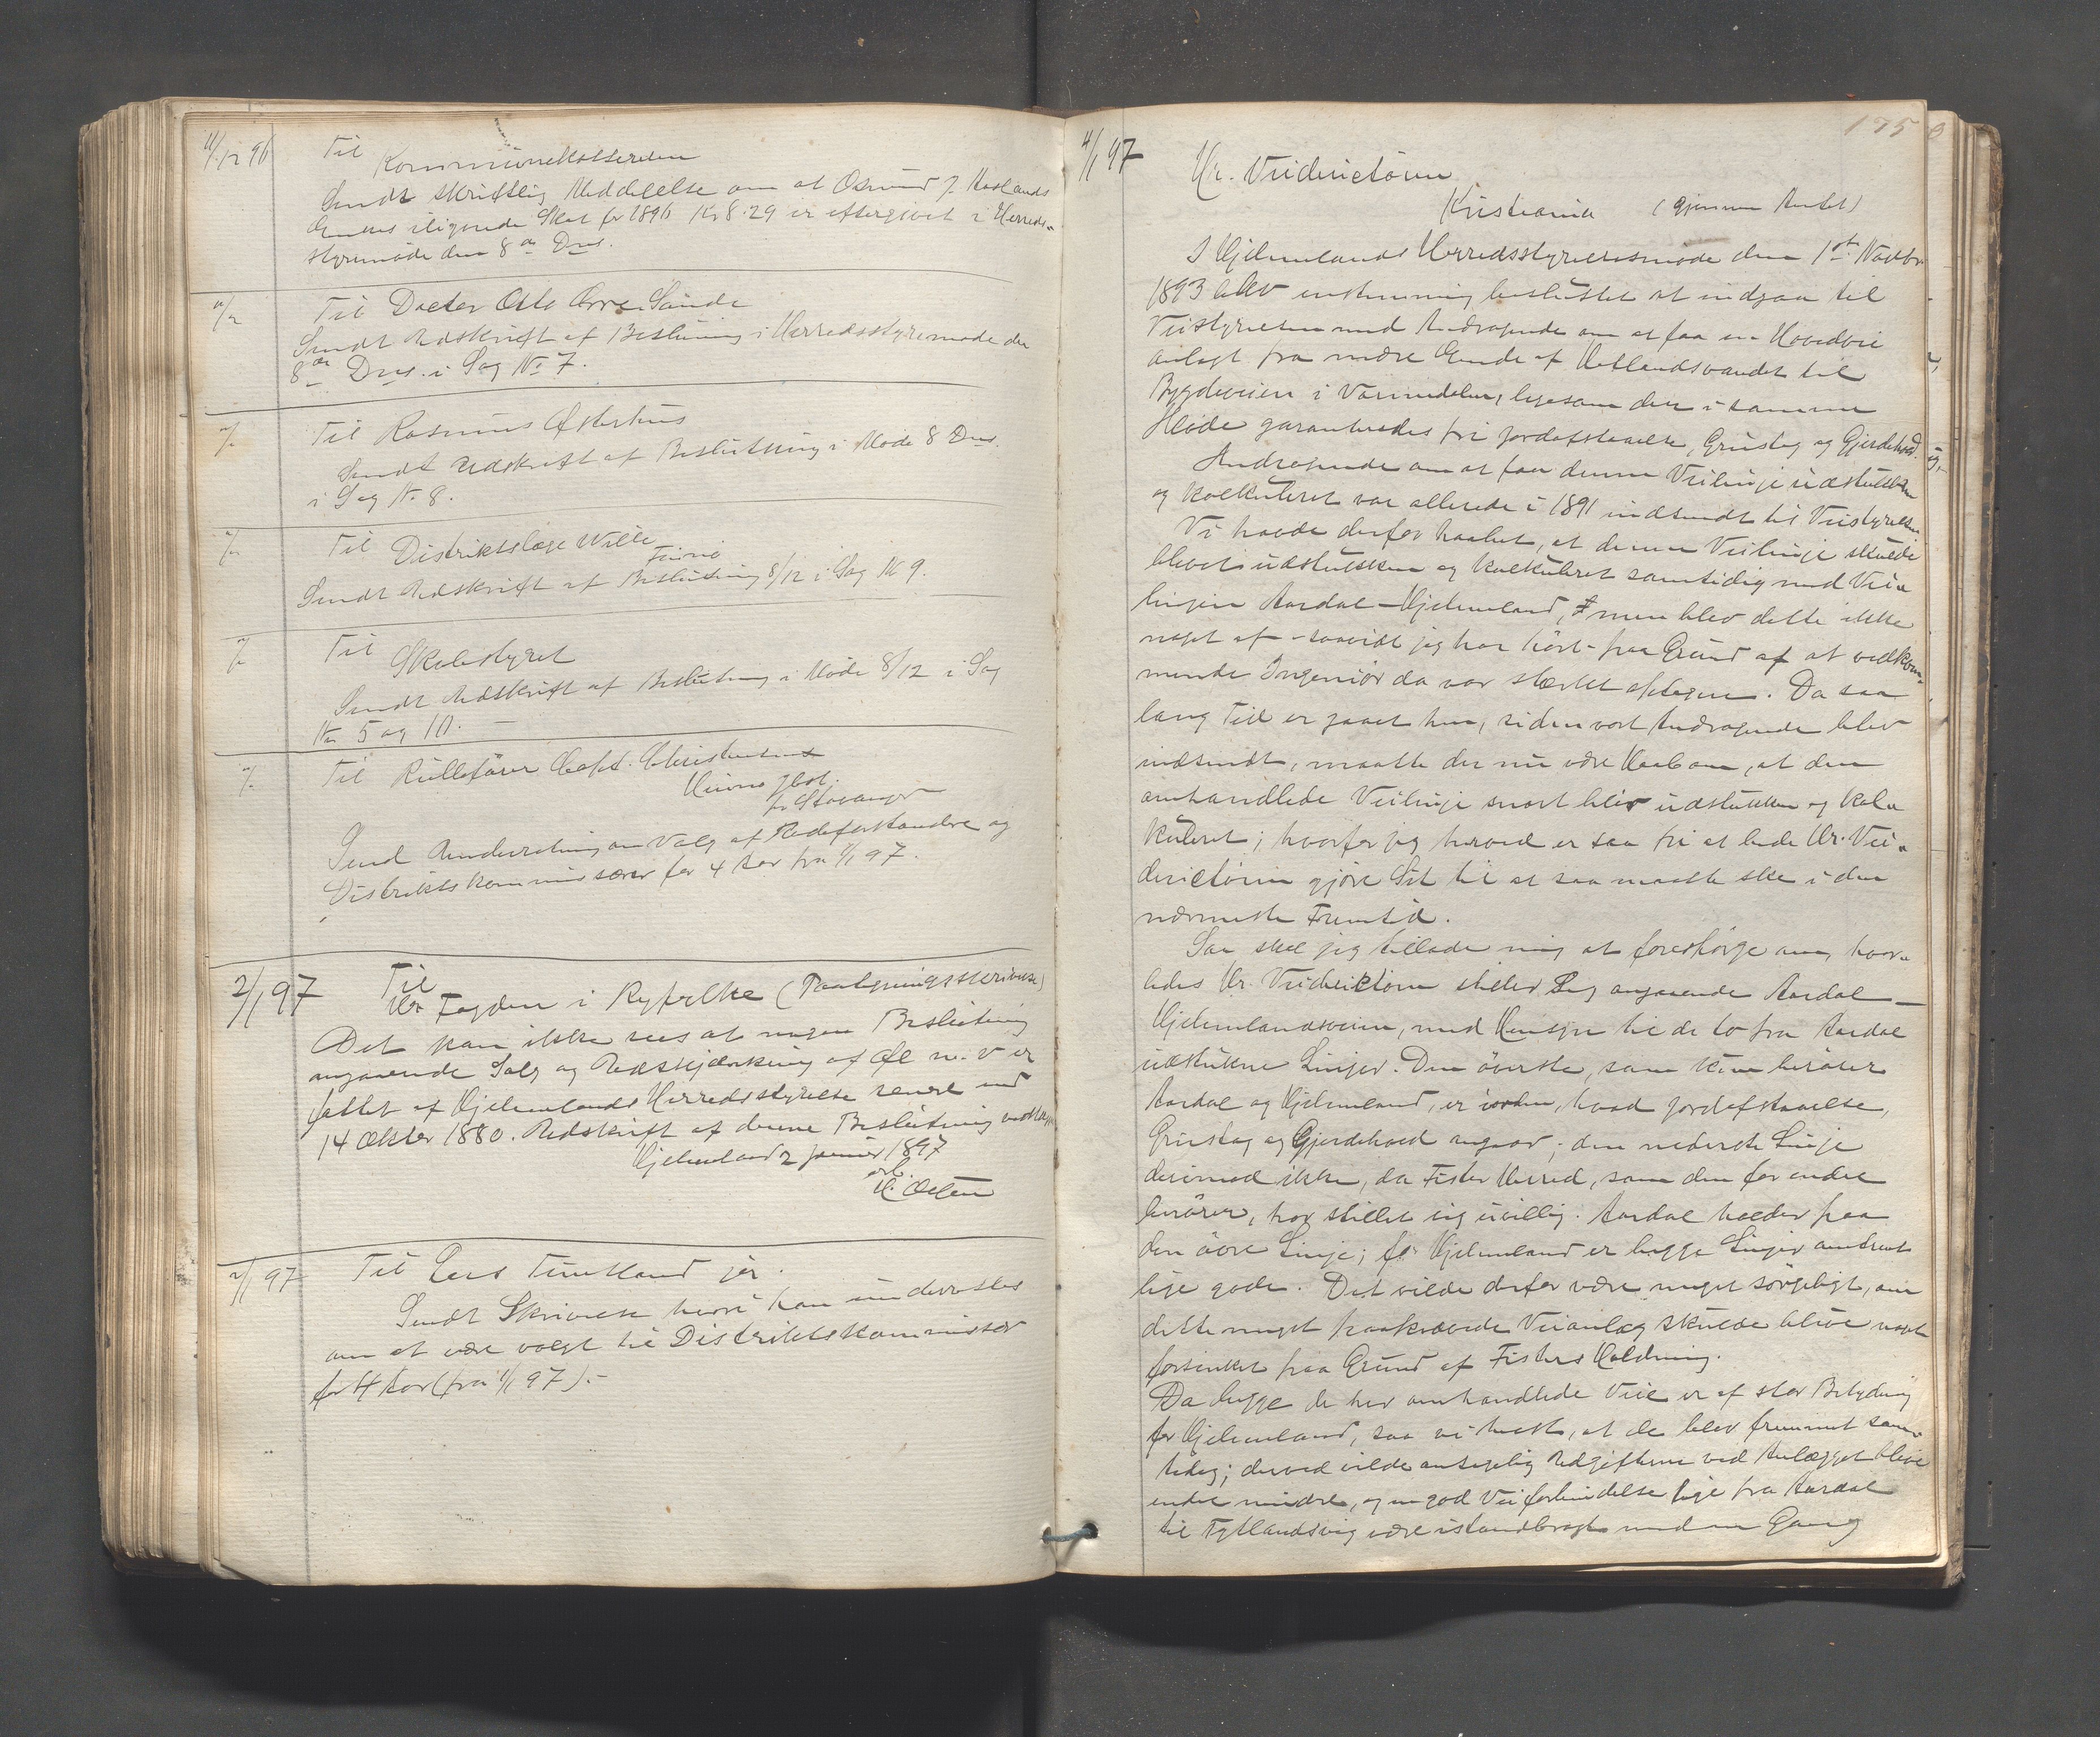 11/12 96
Til
Kommunekassereren
Sendt skriftlig Meddelelse om at Osmund J. Haslands
Enkes iligende Skat for 1896 Kr 8.29 er eftergivet i Herreds-
styremøde den 8de Dns.
Til Doctor Otto Orre Sande
Sendt Udskrift af Beslutning i Herredsstyremøde den
8de Dns. i Sag No 7.
Til Rasmus Østerhus
Sendt Udskrift af Beslutning i Møde 8 Dns.
i Sag N. 8.
Til Distriktslæge Wille
Sendt Udskrift af Beslutning 8/12 i Sag N 9.
Til
Skolestyret
Sendt Udskrift af Beslutning i Møde 8/12 i Sag
No 5 og 10. —
Til Rullefører Capt. Christensen
pr Stavanger
Send Underretning om Valg af Rodeforstandere og
Distriktskommissærer for 4 Aar fra 1/1 97.
2/1 97
Til
Hr Fogden i Ryfylke (Paategningsskrivelse)
Det kan ikke sees at nogen Beslutning
angaaende Salg og Udskjænkning af Øl m. v er
fattet af Hjelmelands Herredsstyrelse senere end
14 Oktbr 1880. Udskrift af denne Beslutning vedlægges
Hjelmeland 2 Januar 1897
2/1 97
Til Lars Tuntland jor.
Sendt Skrivelse hvori han underrettes
om at være valgt til Distriktskommissær
for 4 Aar (fra 1/1 97). -
175
4/1 97
Hr. Veidirectøren
Kristiania (gjennem Amtet)
I Hjelmelands Herredsstyrelsesmøde den 1ste Novbr
1893 blev enstemmig besluttet at indgaa til
Veistyrelsen med Andragende om at faa en Hovedvei
anlagt fra nedre Ende af Hetlandsvandet til
Bygdeveien i Vormedalen, ligesom der i samme
Møde garanteredes fri Jordafstaaelse, Grustag og Gjerdehold.
Andragende om at faa denne Veilinje udstukken
og kalkuleret var allerede i 1891 indsendt til Veistyrelsen
Vi havde derfor haabet, at denne Veilinje skulde
blevet udstukken og kalkuleret samtidig med Vei-
linjen Aardal – Hjelmeland, men blev dette ikke
noget af - saavidt jeg har hørt - paa Grund af at vedkom-
mende Ingeniør da var stærkt optagen. Da saa
lang Tid er gaaet hen, siden vort Andragende blev
indsendt, maatte der nu være Haab om, at den
omhandlede Veilinje snart blev udstukken og kal-
kuleret; hvorfor jeg herved er saa fri at bede Hr. Vei-
directøren gjøre Sit til at saa maatte ske i den
nærmeste Fremtid.
Saa skal jeg tillade mig at forespørge om, hvor-
ledes Hr. Veidirectøren stiller Sig angaaende Aardal —
Hjelmelandsveien, med Hensyn til de to fra Aardal
udstukne Linjer. Den øverste, som kun berører
Aardal og Hjelmeland, er iorden, hvad Jordafstaaelse,
Grustag og Gjerdehold angaar; den nederste Linje
derimod ikke, da Fister Herred, som den for endel
berører, har stillet sig uvillig. Aardal holder paa
den øvre Linje; for Hjelmeland er begge Linjer omtrent
lige gode. Det vilde derfor være meget sørgeligt, om
dette meget paakrævede Veianlæg skulde blive noget
forsinket paa Grund af Fisters Holdning.
Da begge de her omhandlede Veie er af stor Betydning
for Hjelmeland, saa vi helst, at de blev fremmet sam-
tidig; derved vilde antagelig Udgifterne ved Anlægget blive
endel mindre, og en god Veiforbindelse lige fra Aardal
til Tytlandsvig være istandbragt med en Gang